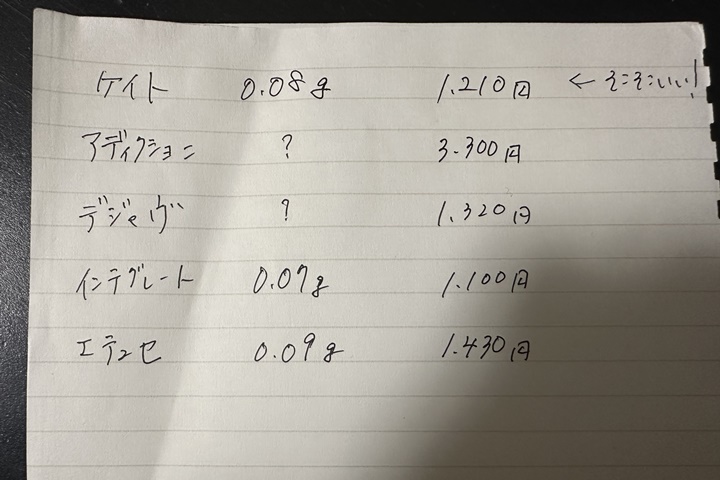 ケイト 0.08g 1.210円 ←そこそこいい!
アディクション ? 3.300円
デジャヴ ? 1.320円
インテグレート 0.07g 1.100円
エテュセ 0.09g 1.430円